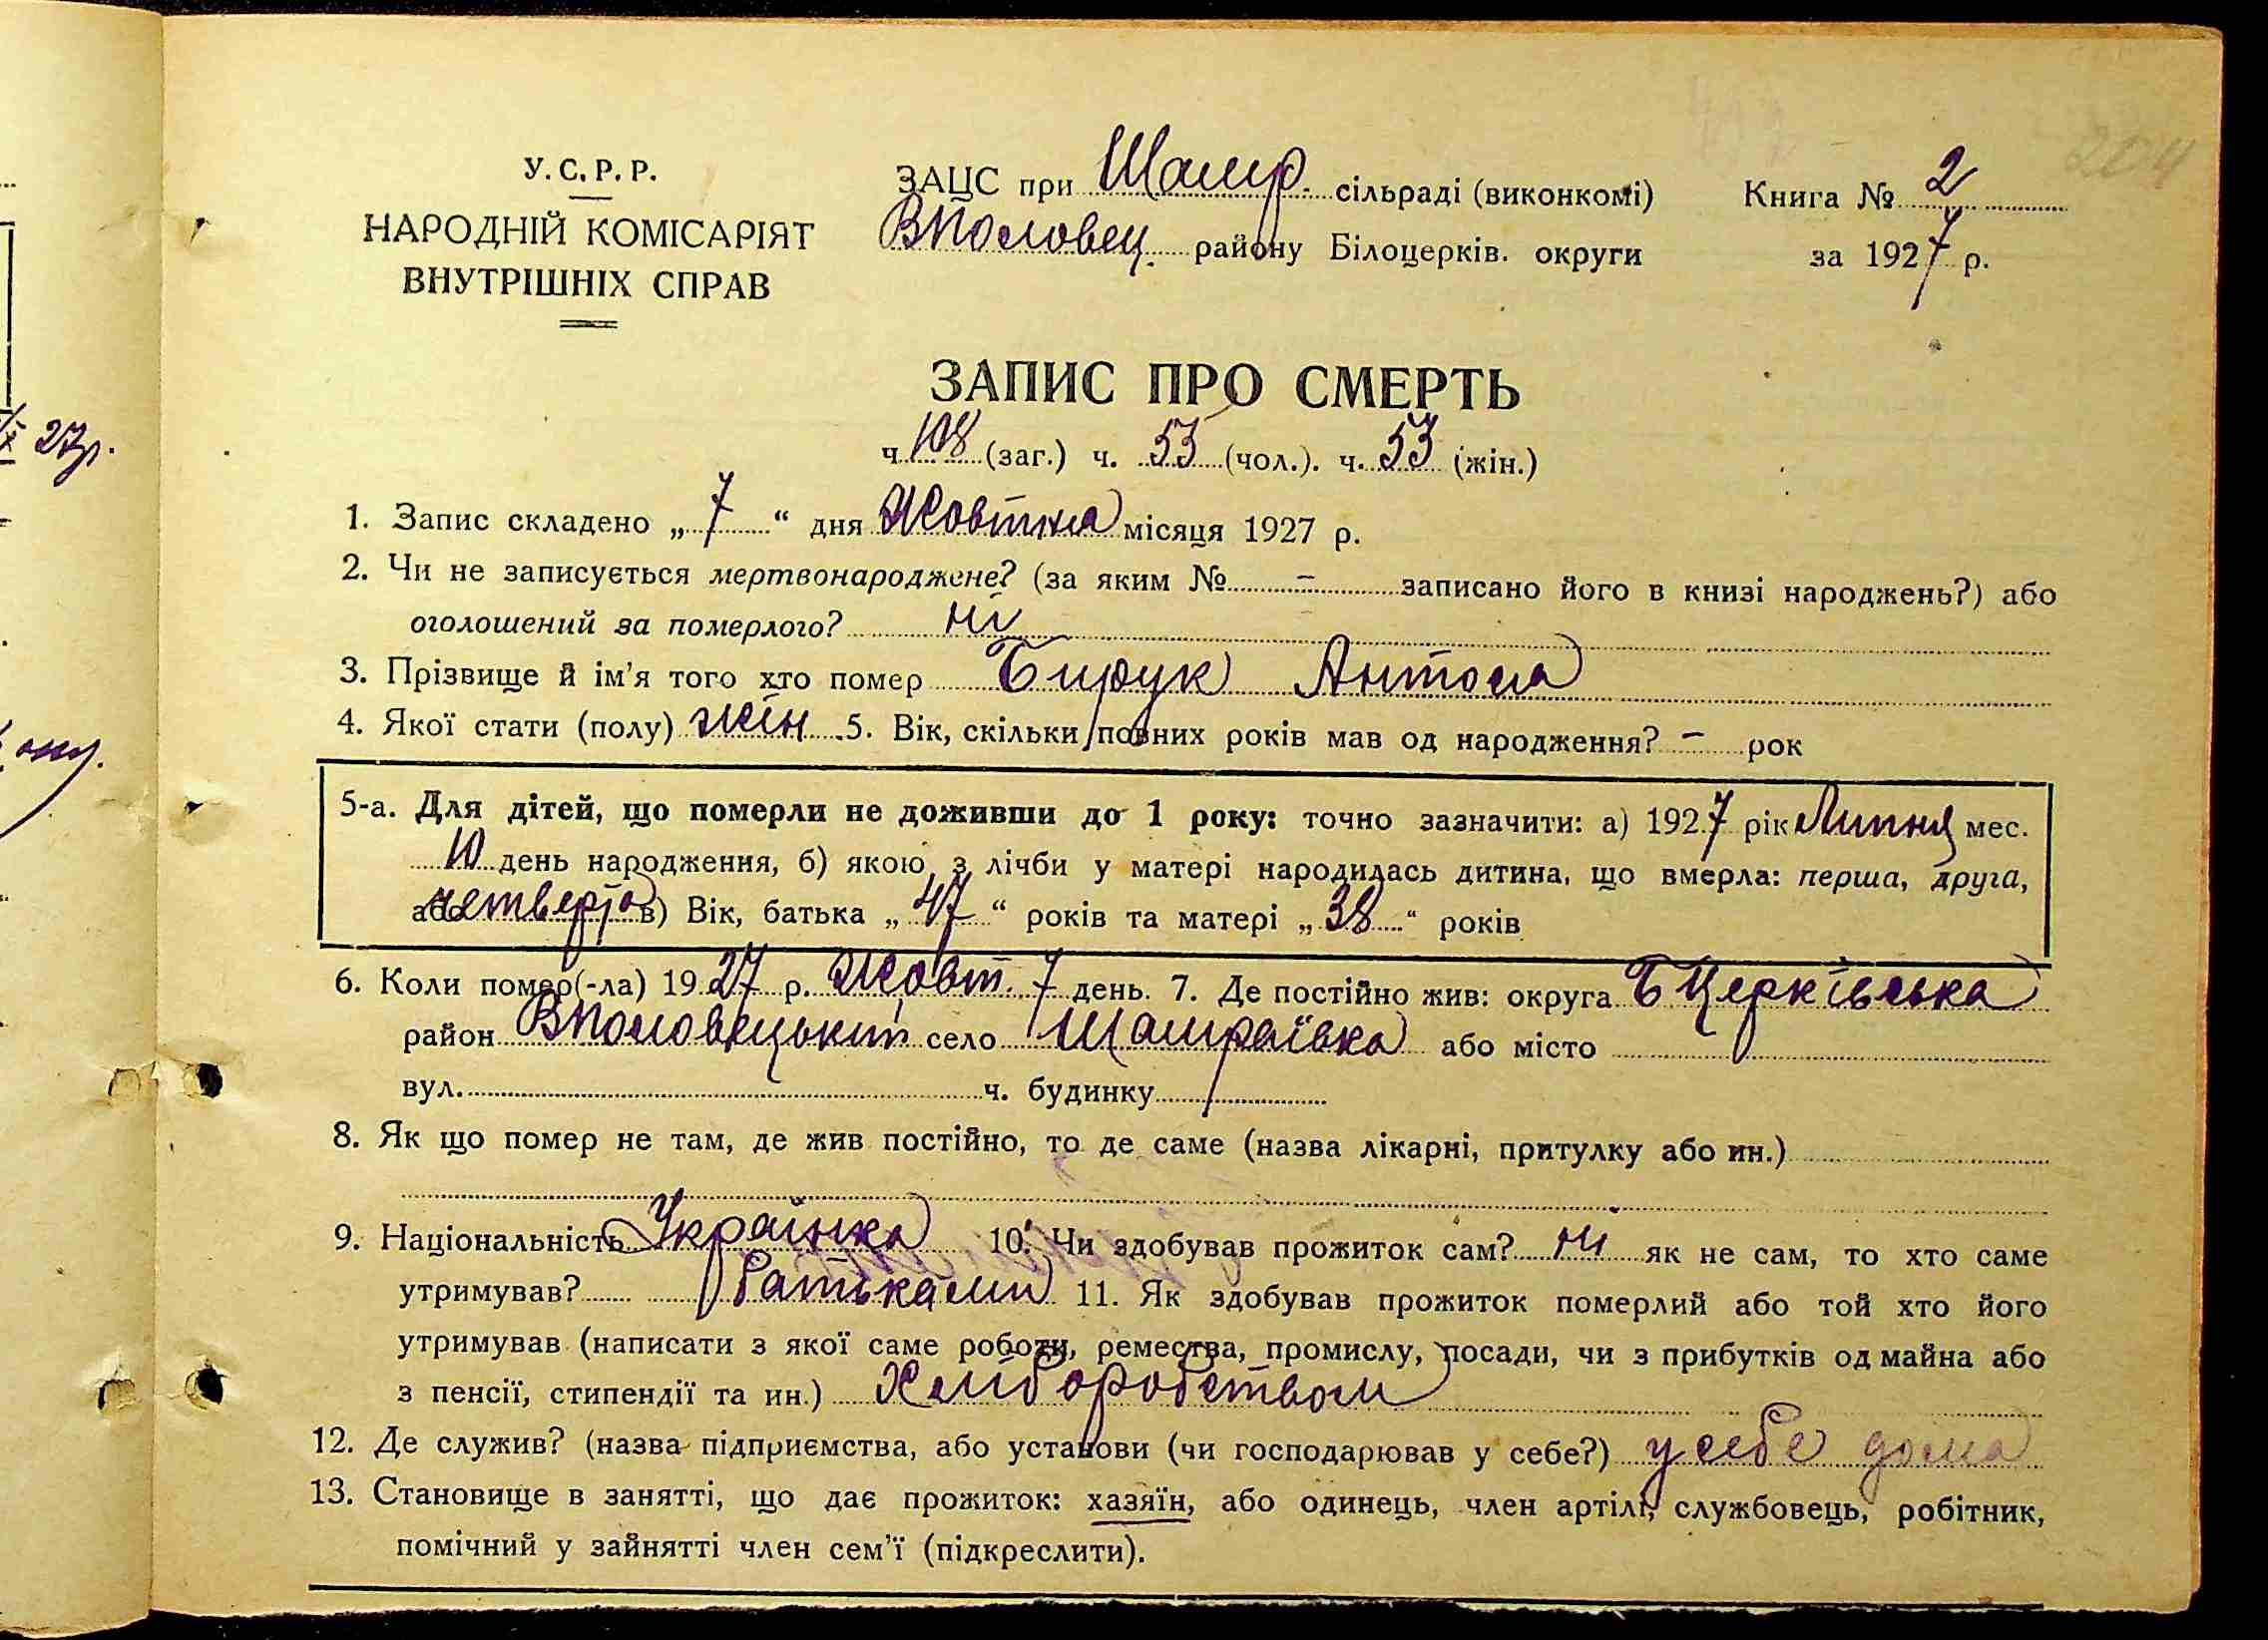 204
У. С. Р. Р.
НАРОДНІЙ КОМІСАРІЯТ
ВНУТРІШНІХ СПРАВ
ЗАЦС при Шамр. сільраді (виконкомі)
ВПоловец. району Білоцерків. округи
Книга № 2
за 1927 р.
ЗАПИС ПРО СМЕРТЬ
ч. 108 (заг.) ч. 53 (чол.). ч. 53 (жін.)
27р.
1. Запис складено „ 7 “ дня Жовтня місяця 1927 р.
2. Чи не записується мертвонароджене? (за яким № – записано його в книзі народжень?) або
оголошений за померлого? ні
3. Прізвище й ім'я того хто помер Бирук Антося
4. Якої стати (полу) жін. 5. Вік, скільки повних років мав од народження? – рок
5-а. Для дітей, що померли не доживши до 1 року: точно зазначити: а) 1927 рік Липня мес.
10 день народження, б) якою з лічби у матері народилась дитина, що вмерла: перша, друга,
або четверта в) Вік, батька „ 47 “ років та матері „ 38 “ років
6. Коли помер(-ла) 1927 р. Жовт. 7 день. 7. Де постійно жив: округа БЦерківська
район ВПоловецький село Шамраївка або місто
вул. ч. будинку
8. Як що помер не там, де жив постійно, то де саме (назва лікарні, притулку або ин.)
9. Національність Українка 10. Чи здобував прожиток сам? ні як не сам, то хто саме
утримував? Батьками 11. Як здобував прожиток померлий або той хто його
утримував (написати з якої саме роботи, ремества, промислу, посади, чи з прибутків од майна або
з пенсії, стипендії та ин.) Хліборобством
12. Де служив? (назва підприємства, або установи (чи господарював у себе?) у себе дома
13. Становище в занятті, що дає прожиток: хазяїн, або одинець, член артілі, службовець, робітник,
помічний у зайнятті член сем'ї (підкреслити).